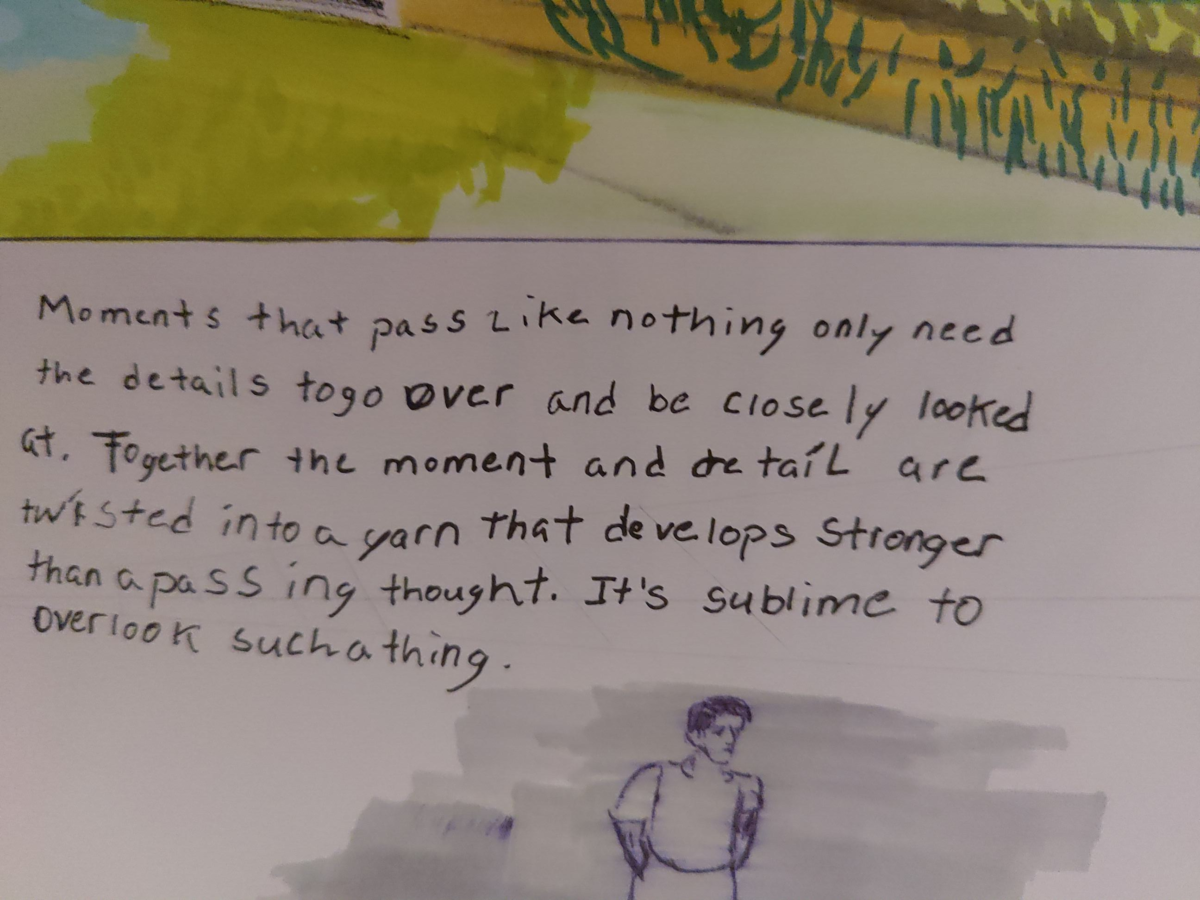 Moments that pass Like nothing only need
the details to go over and be closely looked
at. Together the moment and detail are
twisted into a yarn that develops stronger
than a passing thought. It's sublime to
overlook such a thing.